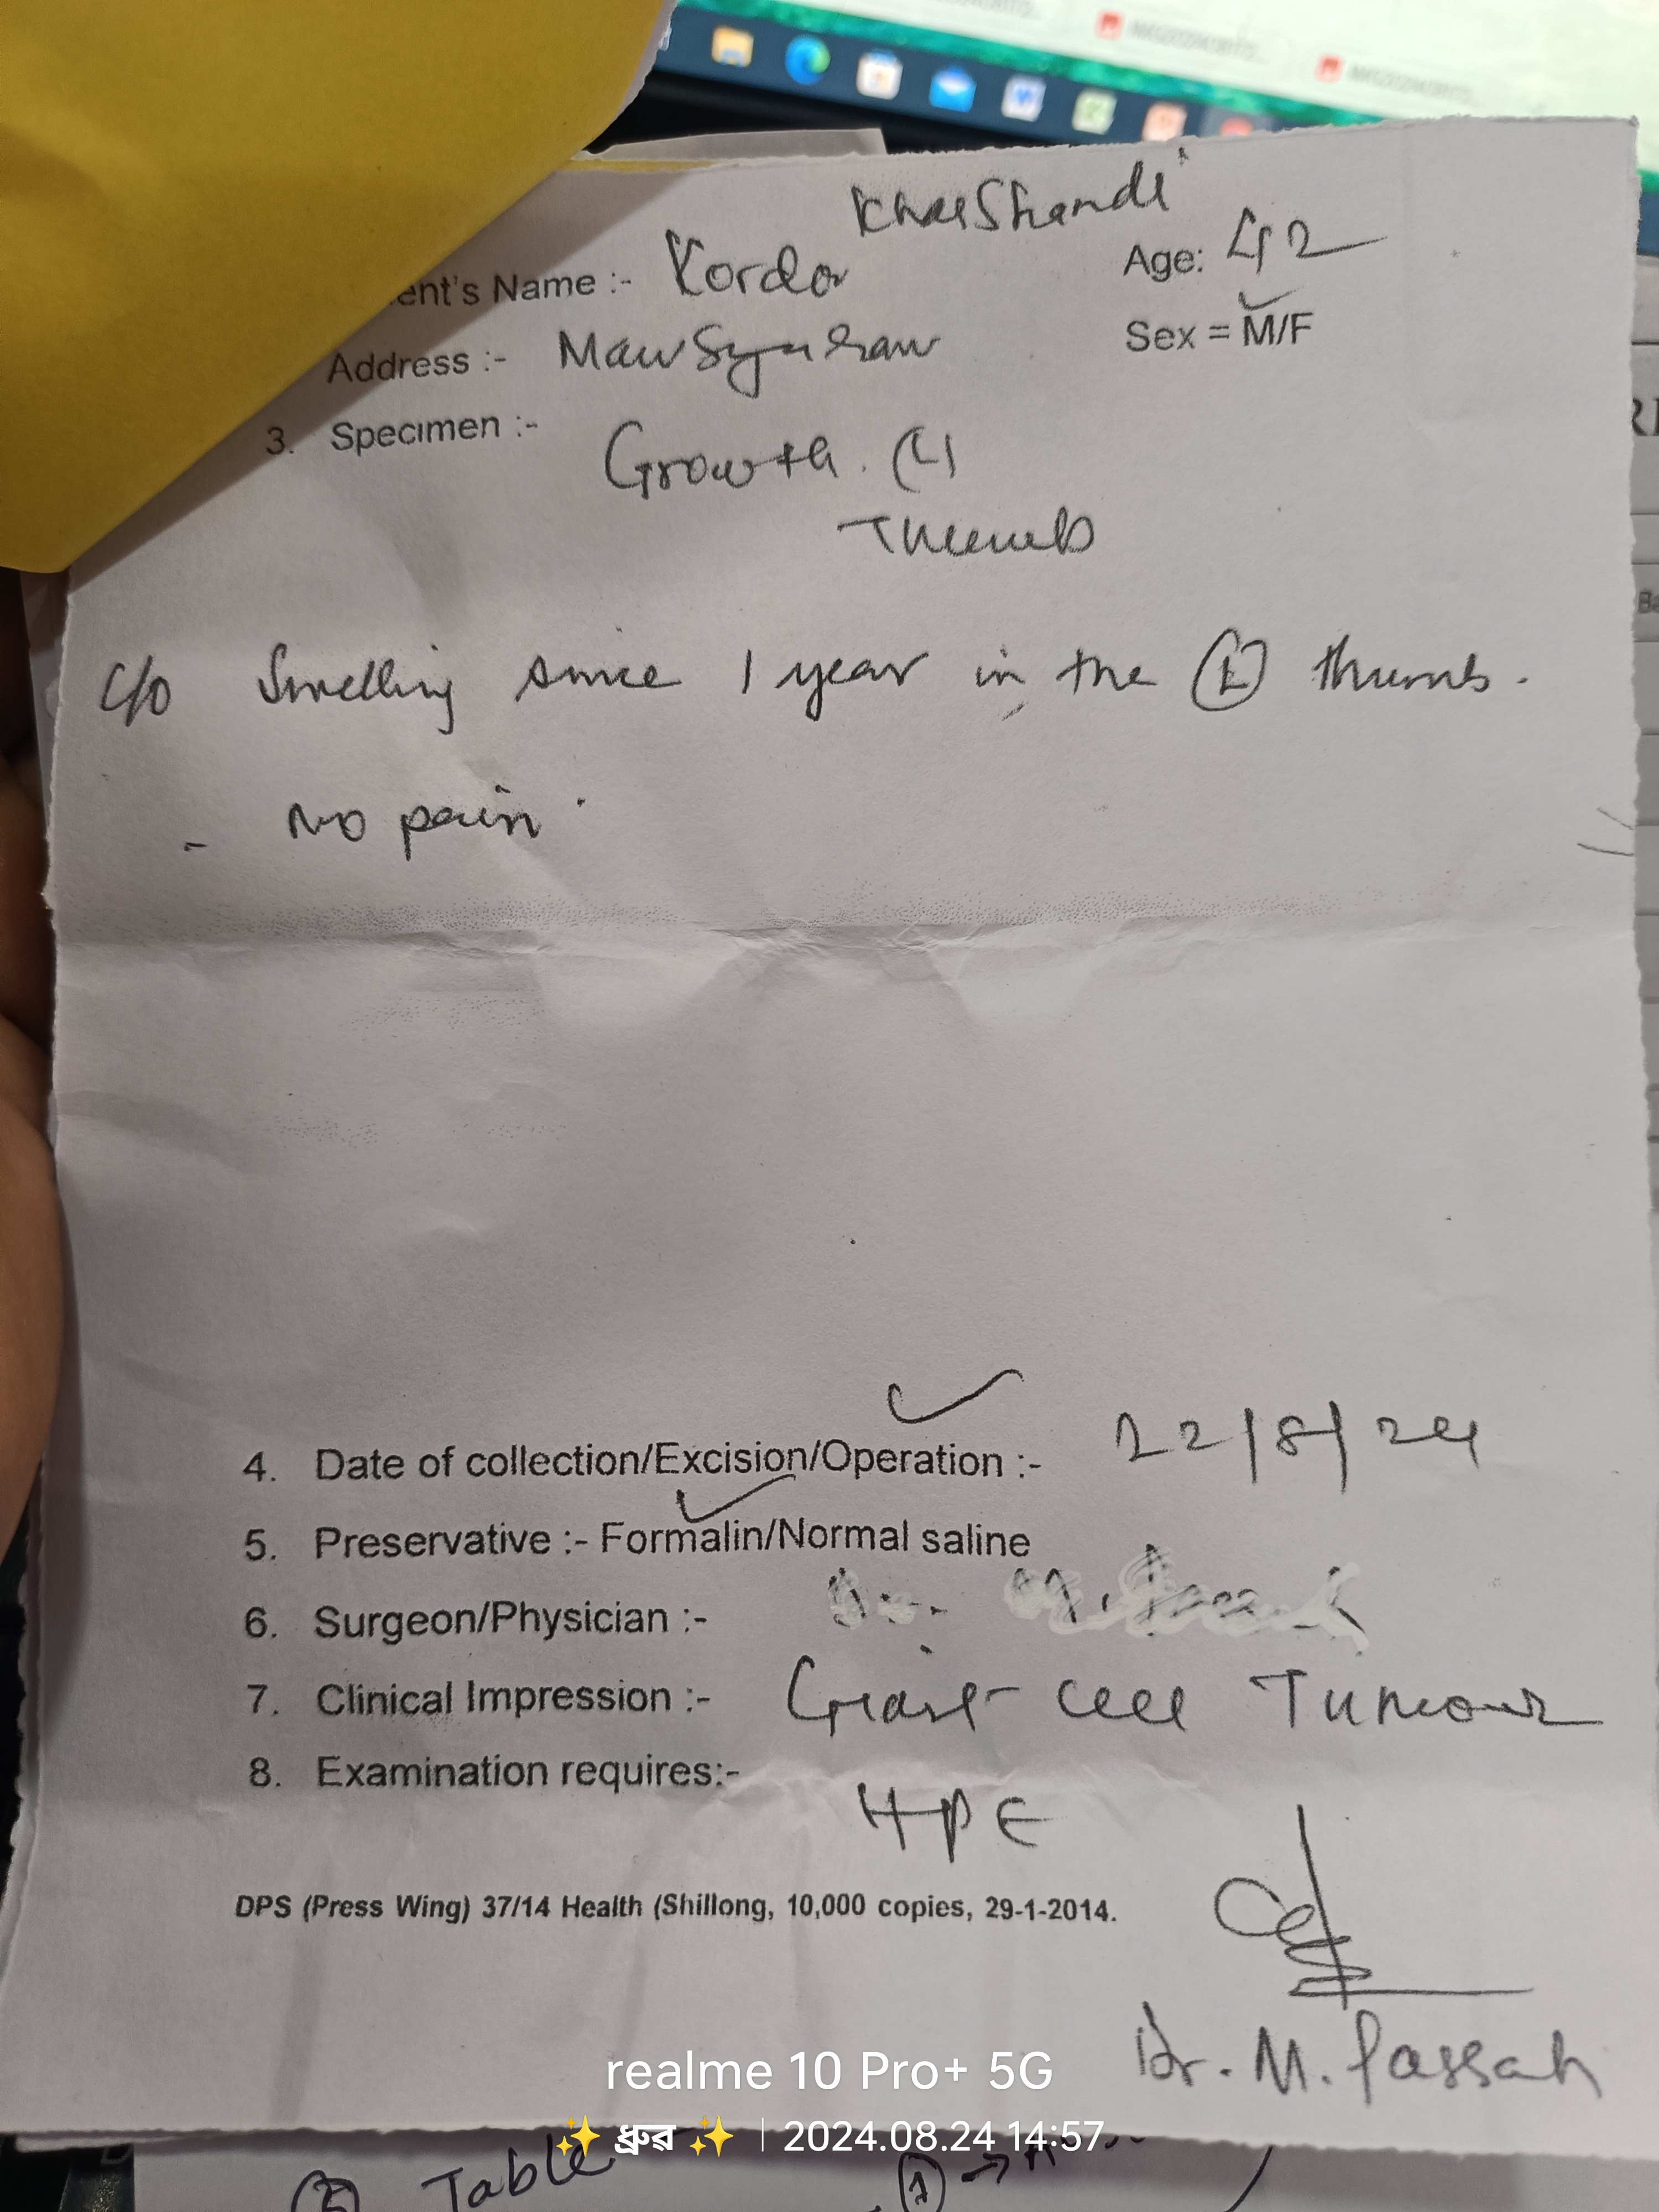 KharShandi
ent's Name :- Kordor Age: 42
Address :- Mawsynram Sex = M/F
3. Specimen :- Growth (L)
Thumb
C/o Swelling since 1 year in the (L) thumb.
- No pain.
4. Date of collection/Excision/Operation :- 22/8/24
5. Preservative :- Formalin/Normal saline
6. Surgeon/Physician :-
7. Clinical Impression :- Giant cell Tumour
8. Examination requires:- HPE
DPS (Press Wing) 37/14 Health (Shillong, 10,000 copies, 29-1-2014.
Dr. M. Passah
realme 10 Pro+ 5G
✨ ধ্ৰুৱ ✨ | 2024.08.24 14:57
Table